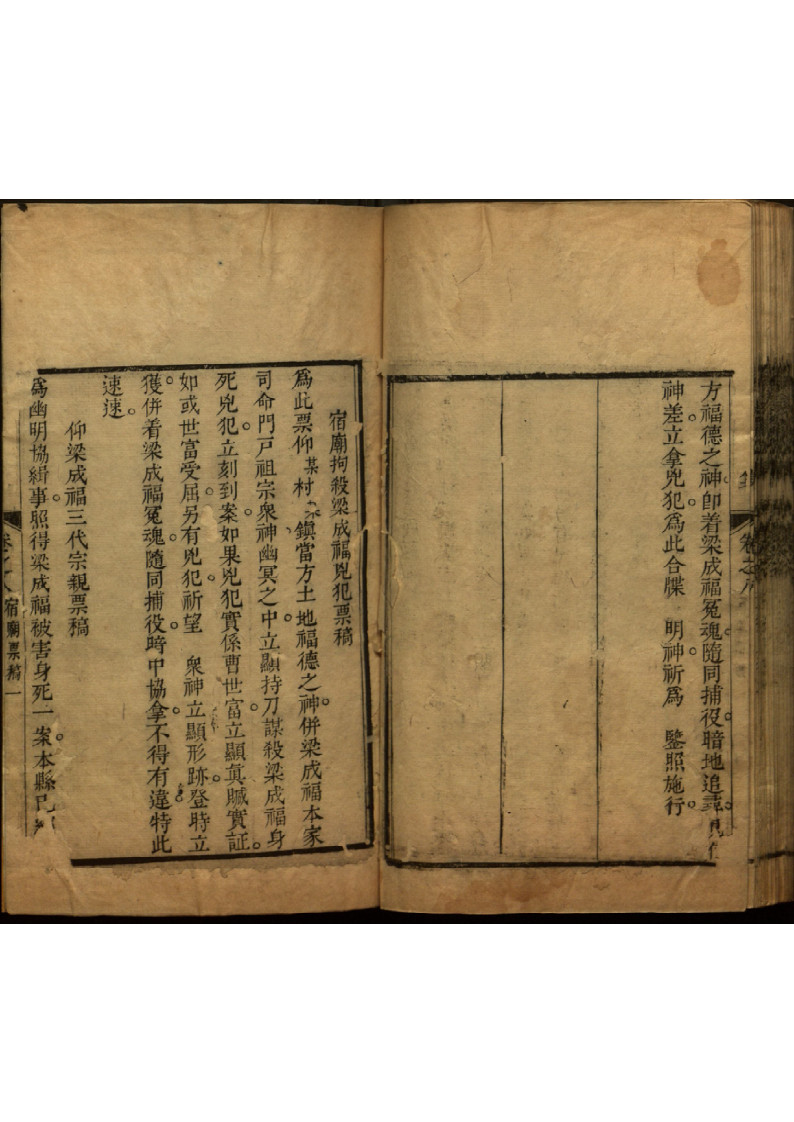 卷之八
方福德之神。卽着梁成福冤魂。隨同捕役。暗地追尋。
神差立拿兇犯。爲此合牒　明神祈爲　鑒照施行。
宿廟拘殺梁成福兇犯票稿
爲此票仰某村、鎭當方土地福德之神。併梁成福本家
司命門戶祖宗衆神幽冥之中。立顯持刀謀殺梁成福身
死兇犯。立刻到案。如果兇犯實係曹世富。立顯眞贓實証。
如或世富受屈。另有兇犯。祈望　衆神立顯形跡。登時立
獲。併着梁成福冤魂。隨同捕役。時中協拿。不得有違。特此
速速。
仰梁成福三代宗親票稿
爲幽明協緝事。照得梁成福被害身死一案。本縣
宿廟票稿　一